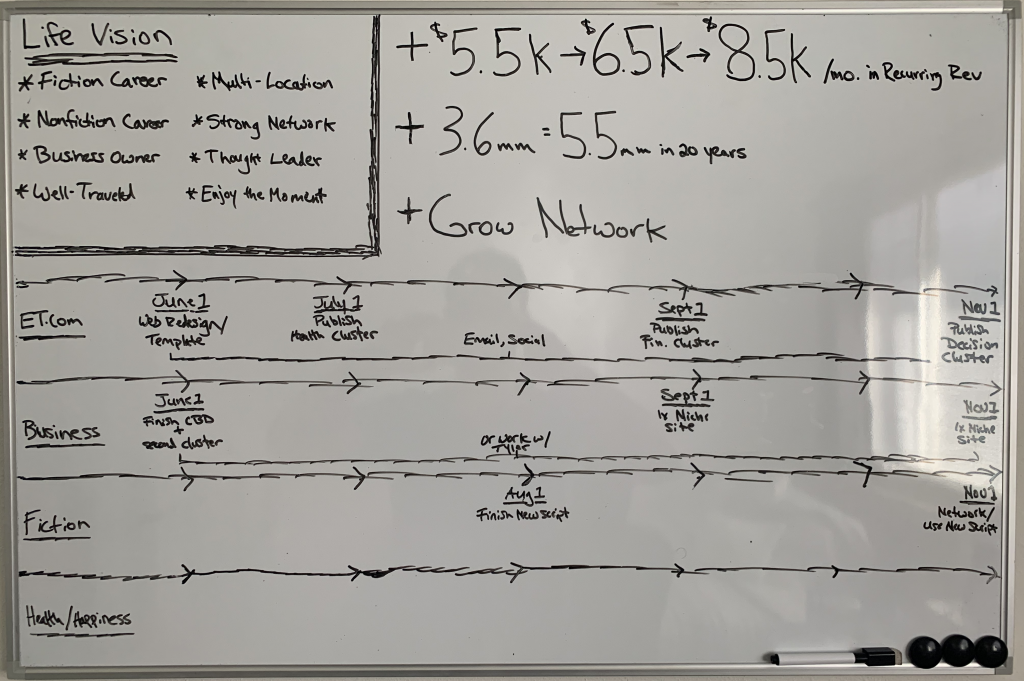 Life Vision
* Fiction Career
* Nonfiction Career
* Business Owner
* Well-Traveled
* Multi-Location
* Strong Network
* Thought Leader
* Enjoy the Moment
+ $5.5k → $6.5k → $8.5k /mo. in Recurring Rev
+ 3.6mm = 5.5mm in 20 years
+ Grow Network
ET.com
June 1
Web Redesign/
Template
July 1
Publish
Health Cluster
Email, Social
Sept 1
Publish
Fin. Cluster
Nov 1
Publish
Decision
Cluster
Business
June 1
Finish CBD
+
second cluster
or work w/
Sept 1
1x Niche
Site
Nov 1
1x Niche
Site
Fiction
Aug 1
Finish New Script
Nov 1
Network/
Use New Script
Health/Happiness